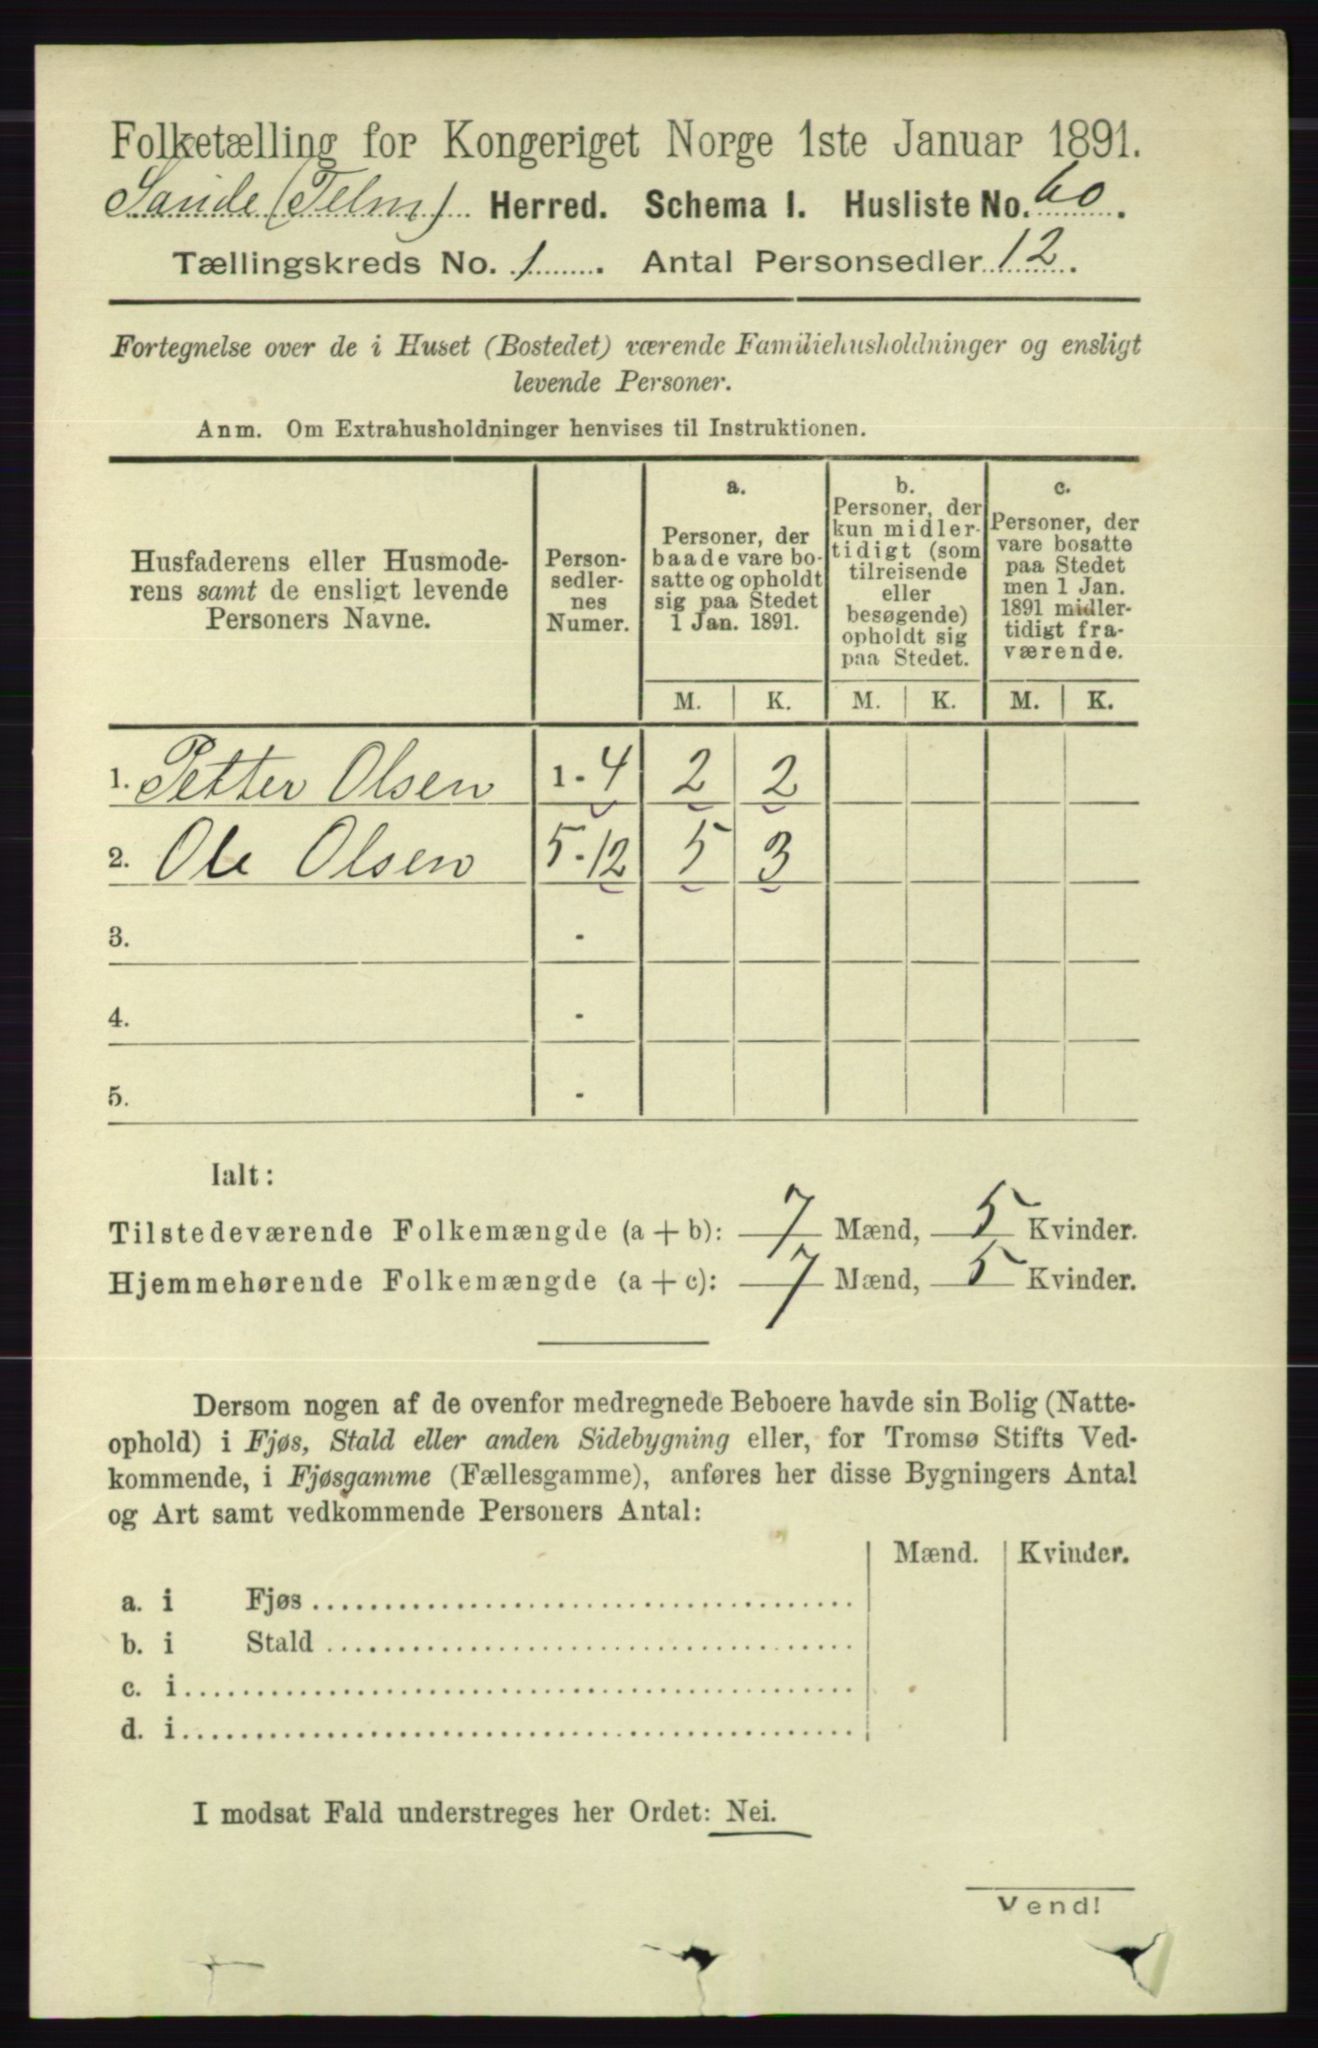 Folketælling for Kongeriget Norge 1ste Januar 1891.
Saude (Telm) Herred. Schema I. Husliste No. 60.
Tællingskreds No. 1. Antal Personsedler 12.
Fortegnelse over de i Huset (Bostedet) værende Familiehusholdninger og ensligt
levende Personer.
Anm. Om Extrahusholdninger henvises til Instruktionen.
Husfaderens eller Husmode-
rens samt de ensligt levende
Personers Navne.
Person-
sedler-
nes
Numer.
a.
Personer, der
baade vare bo-
satte og opholdt
sig paa Stedet
1 Jan. 1891.
b.
Personer, der
kun midler-
tidigt (som
tilreisende
eller
besøgende)
opholdt sig
paa Stedet.
c.
Personer, der
vare bosatte
paa Stedet
men 1 Jan.
1891 midler-
tidigt fra-
værende.
M. K. M. K. M. K.
1. Petter Olsen 1 - 4 2 2
2. Ole Olsen 5 - 12 5 3
3. -
4. -
5. -
Ialt:
Tilstedeværende Folkemængde (a + b): 7 Mænd, 5 Kvinder.
Hjemmehørende Folkemængde (a + c): 7 Mænd, 5 Kvinder.
Dersom nogen af de ovenfor medregnede Beboere havde sin Bolig (Natte-
ophold) i Fjøs, Stald eller anden Sidebygning eller, for Tromsø Stifts Ved-
kommende, i Fjøsgamme (Fællesgamme), anføres her disse Bygningers Antal
og Art samt vedkommende Personers Antal:
Mænd. Kvinder.
a. i Fjøs
b. i Stald
c. i
d. i
I modsat Fald understreges her Ordet: Nei.
Vend!